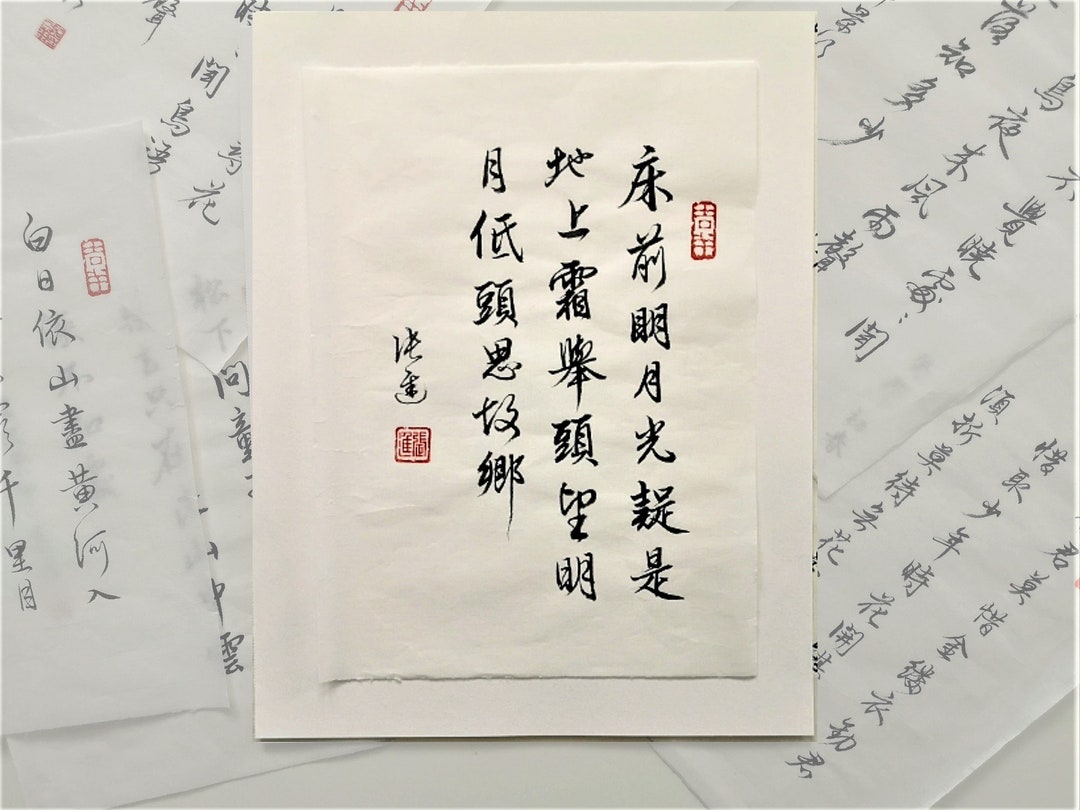 床前明月光疑是
地上霜舉頭望明
月低頭思故鄉
張進
張進
不覺曉處處聞
鳥夜來風雨聲
落知多少
君莫惜金縷衣勸君
惜取少年時花開
須折莫待無花
聞
鳥
花
松下
問童
中雲
白日依山盡黃河入
千里目